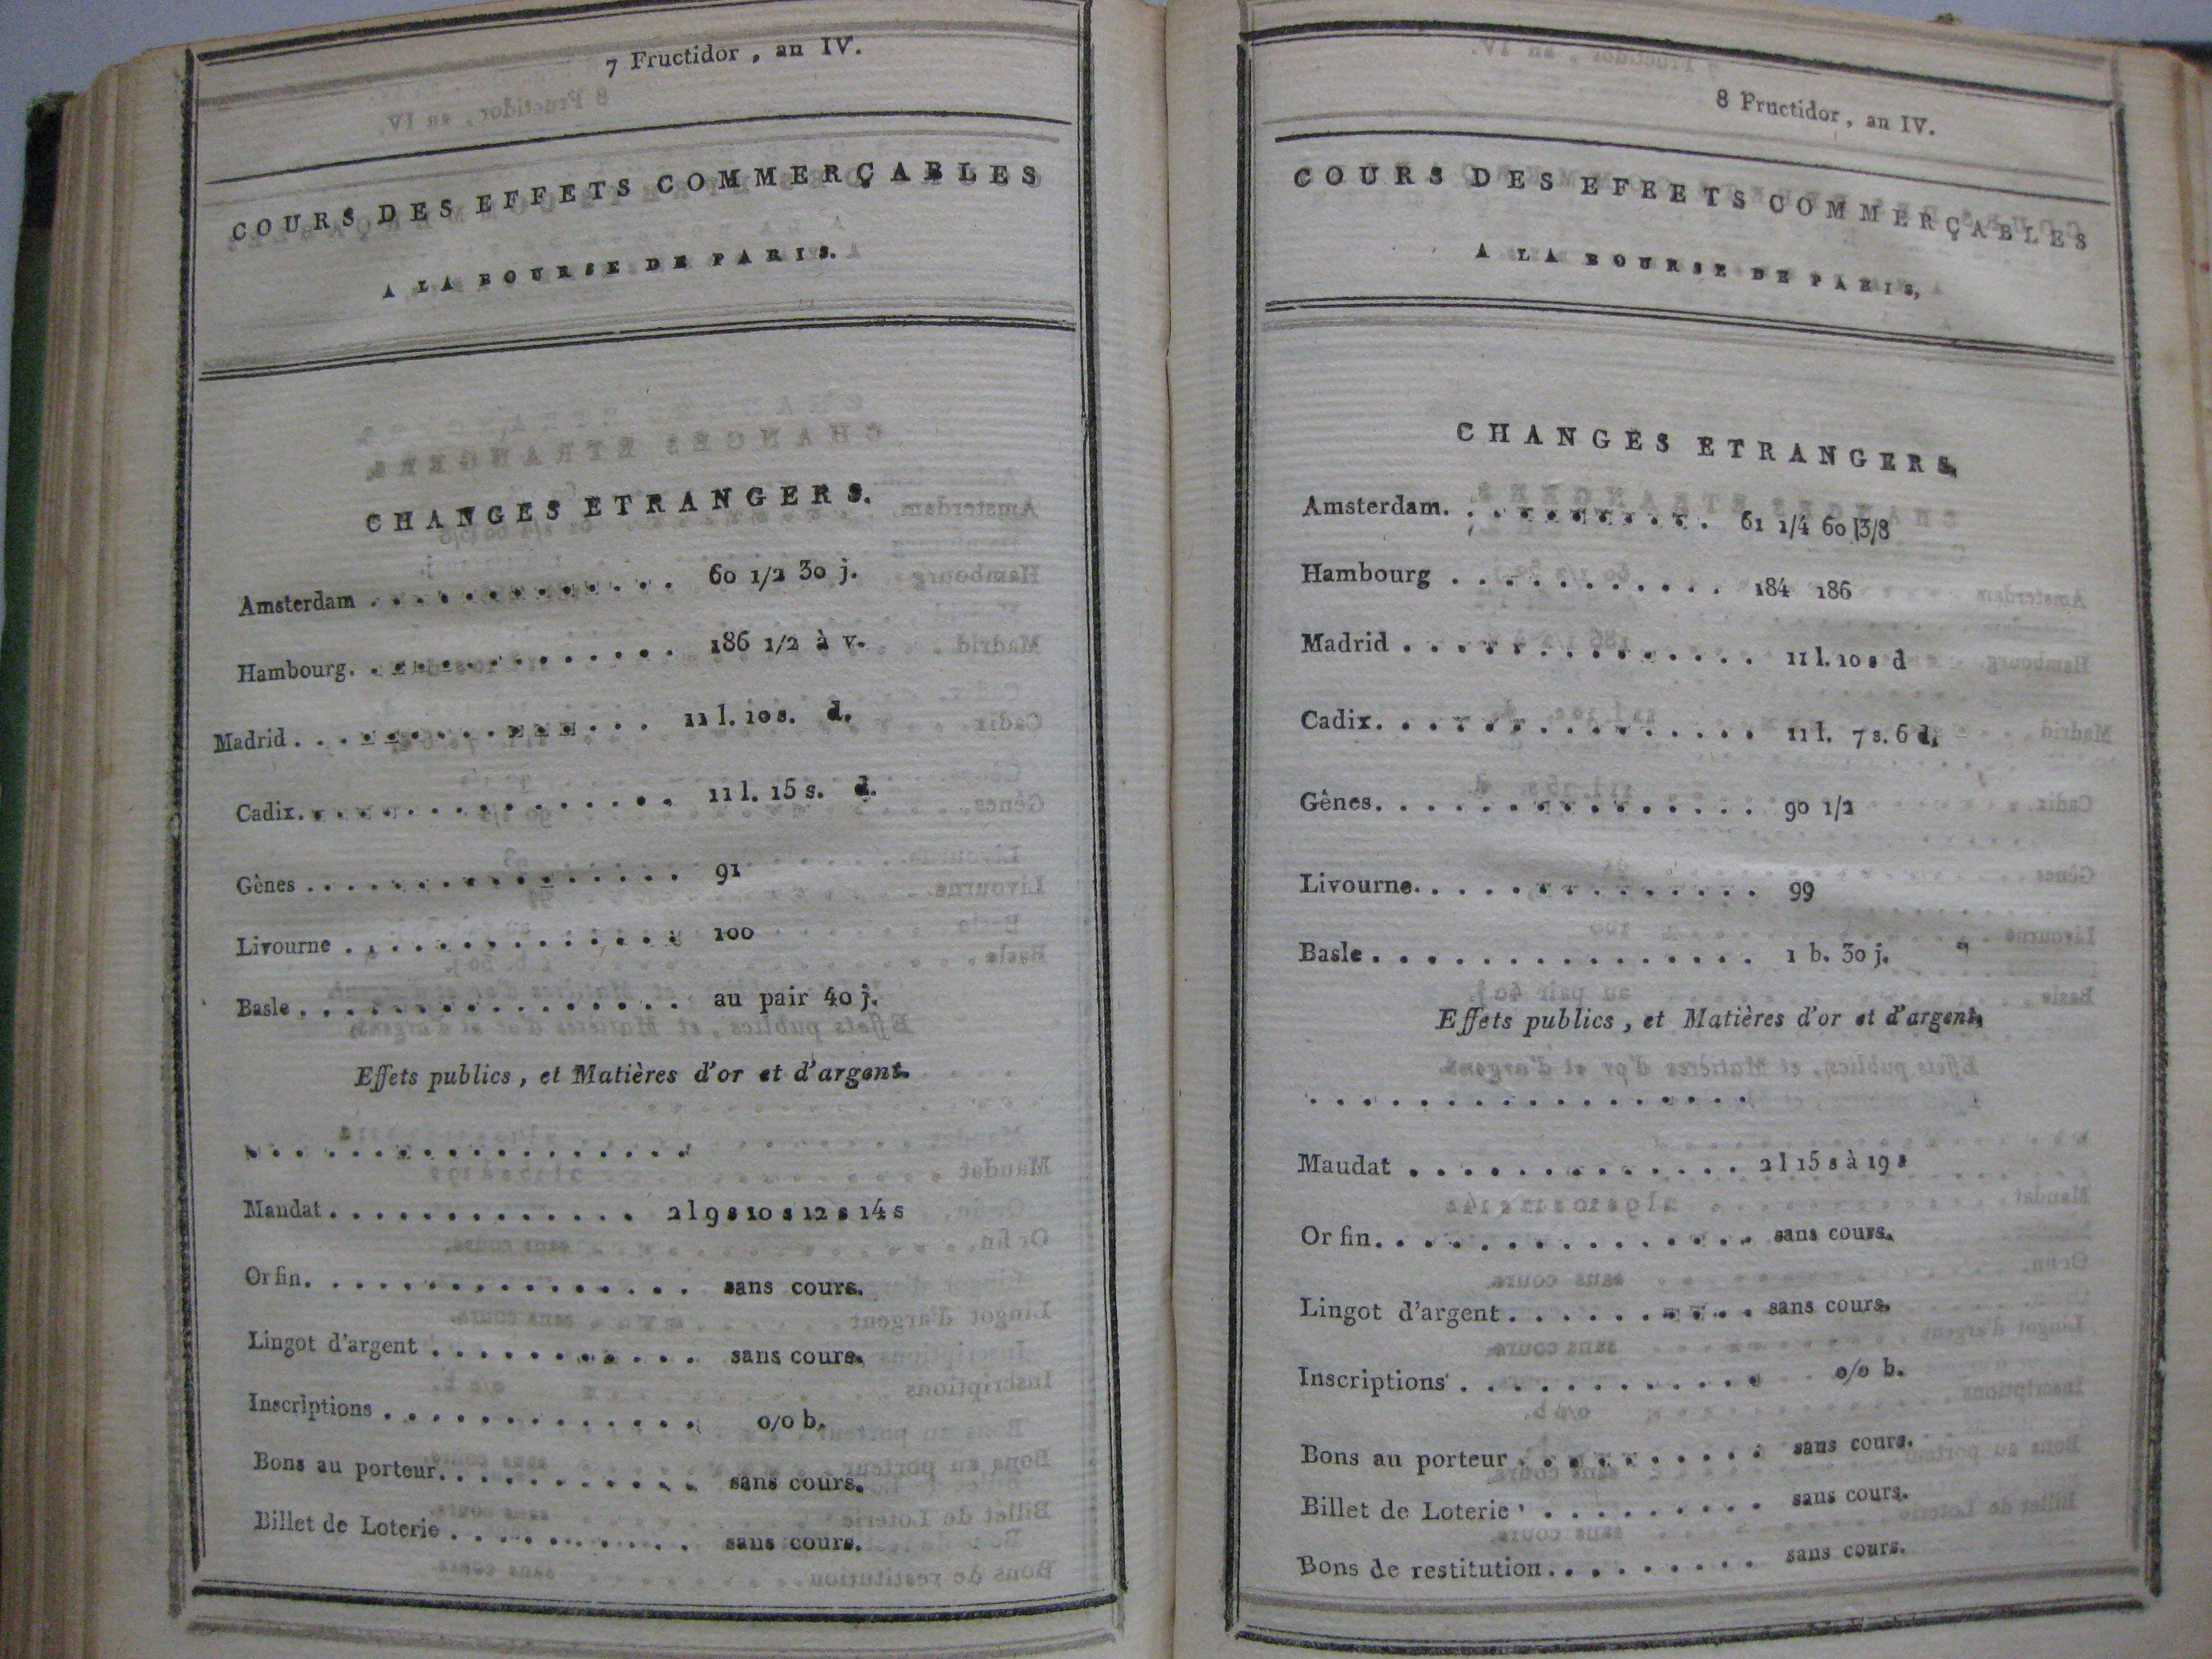 7 Fructidor, an IV.
COURS DES EFFETS COMMERÇABLES
A LA BOURSE DE PARIS.
CHANGES ETRANGERS.
Amsterdam . . . . . . . . . . . . . 60 1/2 30 j.
Hambourg. . . . . . . . . . . . . 186 1/2 à v.
Madrid . . . . . . . . . . . . . . 11 l. 10 s. d.
Cadix. . . . . . . . . . . . . . . 11 l. 15 s. d.
Gênes . . . . . . . . . . . . . . . . 91
Livourne . . . . . . . . . . . . . . 100
Basle . . . . . . . . . . . . . . . . au pair 40 j.
Effets publics, et Matières d'or et d'argent.
. . . . . . . . . . . . . . . . .
Mandat . . . . . . . . . . . . . 2 l 9 s 10 s 12 s 14 s
Or fin. . . . . . . . . . . . . . . . sans cours.
Lingot d'argent . . . . . . . . . . . sans cours.
Inscriptions . . . . . . . . . . . . . 0/0 b.
Bons au porteur. . . . . . . . . . . sans cours.
Billet de Loterie . . . . . . . . . . sans cours.
8 Fructidor, an IV.
COURS DES EFEETS COMMERÇABLES
A LA BOURSE DE PARIS,
CHANGES ETRANGERS.
Amsterdam. . . . . . . . . . 61 1/4 60 3/8
Hambourg . . . . . . . . . . . 184 186
Madrid . . . . . . . . . . . . . . 11 l. 10 s d
Cadix. . . . . . . . . . . . . . . 11 l. 7 s. 6 d.
Gênes. . . . . . . . . . . . . . . 90 1/2
Livourne. . . . . . . . . . . . . . 99
Basle . . . . . . . . . . . . . . . 1 b. 30 j.
Effets publics, et Matières d'or et d'argent.
. . . . . . . . . . . . . . . . .
Maudat . . . . . . . . . . . . . 2 l 15 s à 19 s
Or fin. . . . . . . . . . . . . . . sans cours.
Lingot d'argent . . . . . . . . . . sans cours.
Inscriptions . . . . . . . . . . . . 0/0 b.
Bons au porteur . . . . . . . . . . sans cours.
Billet de Loterie . . . . . . . . . . sans cours.
Bons de restitution. . . . . . . . . sans cours.